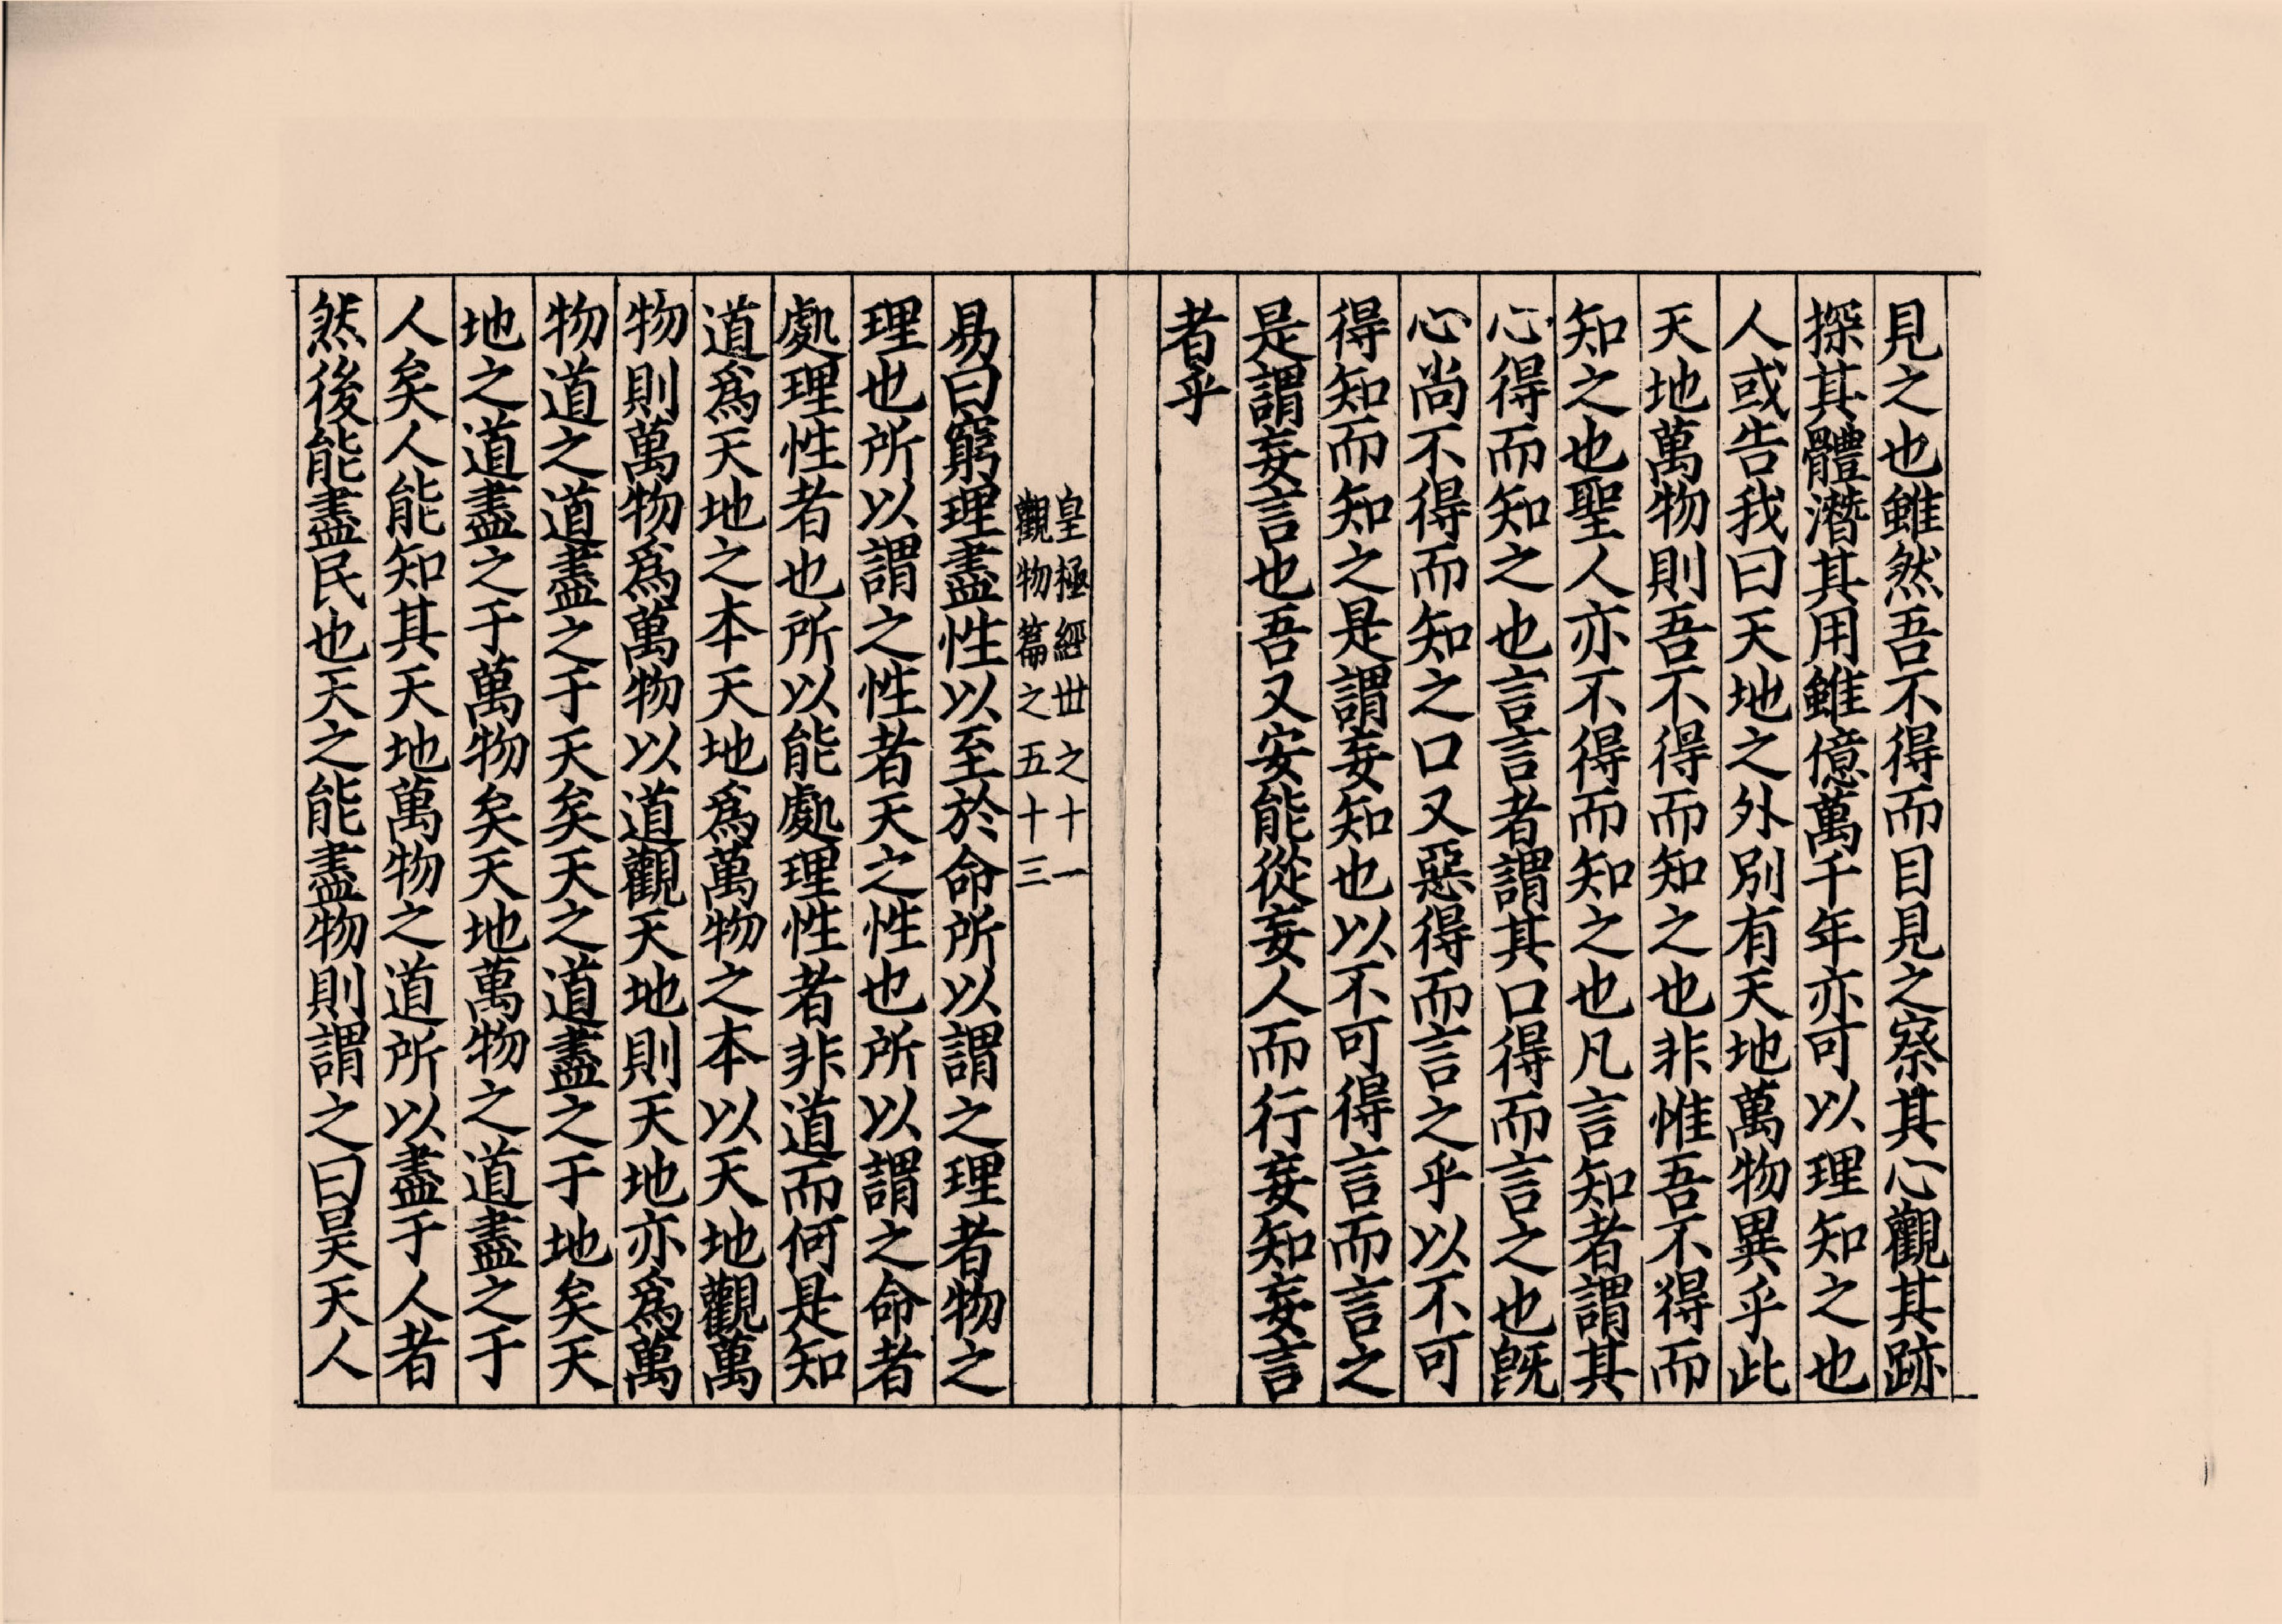 見之也雖然吾不得而目見之察其心觀其跡
探其體潛其用雖億萬千年亦可以理知之也
人或告我曰天地之外別有天地萬物異乎此
天地萬物則吾不得而知之也非惟吾不得而
知之也聖人亦不得而知之也凡言知者謂其
心得而知之也言言者謂其口得而言之也旣
心尚不得而知之口又惡得而言之乎以不可
得知而知之是謂妄知也以不可得言而言之
是謂妄言也吾又安能從妄人而行妄知妄言
者乎
皇極經世之十一
觀物篇之五十三
易曰窮理盡性以至於命所以謂之理者物之
理也所以謂之性者天之性也所以謂之命者
處理性者也所以能處理性者非道而何是知
道爲天地之本天地爲萬物之本以天地觀萬
物則萬物爲萬物以道觀天地則天地亦爲萬
物道之道盡之于天矣天之道盡之于地矣天
地之道盡之于萬物矣天地萬物之道盡之于
人矣人能知其天地萬物之道所以盡于人者
然後能盡民也天之能盡物則謂之曰昊天人